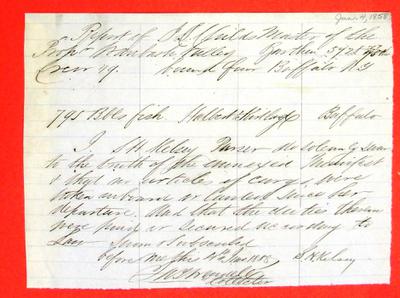 June 4, 1858
Report of J. S. Childs Master of the
Propr Wabash Valley Burthen 592 8/95 tons
Crew 29. bound for Buffalo N.Y
795 Bbls fish Buffalo
I S H Kelsey Purser do solemnly Swear
to the truth of the annexed Manifest
& that no articles of cargo were
taken onboard or landed since her
departure. And that the duties thereon
were paid or secured according to
Law Sworn & Subscribed
before me this 4th June 1858 S. H. Kelsey
Collector